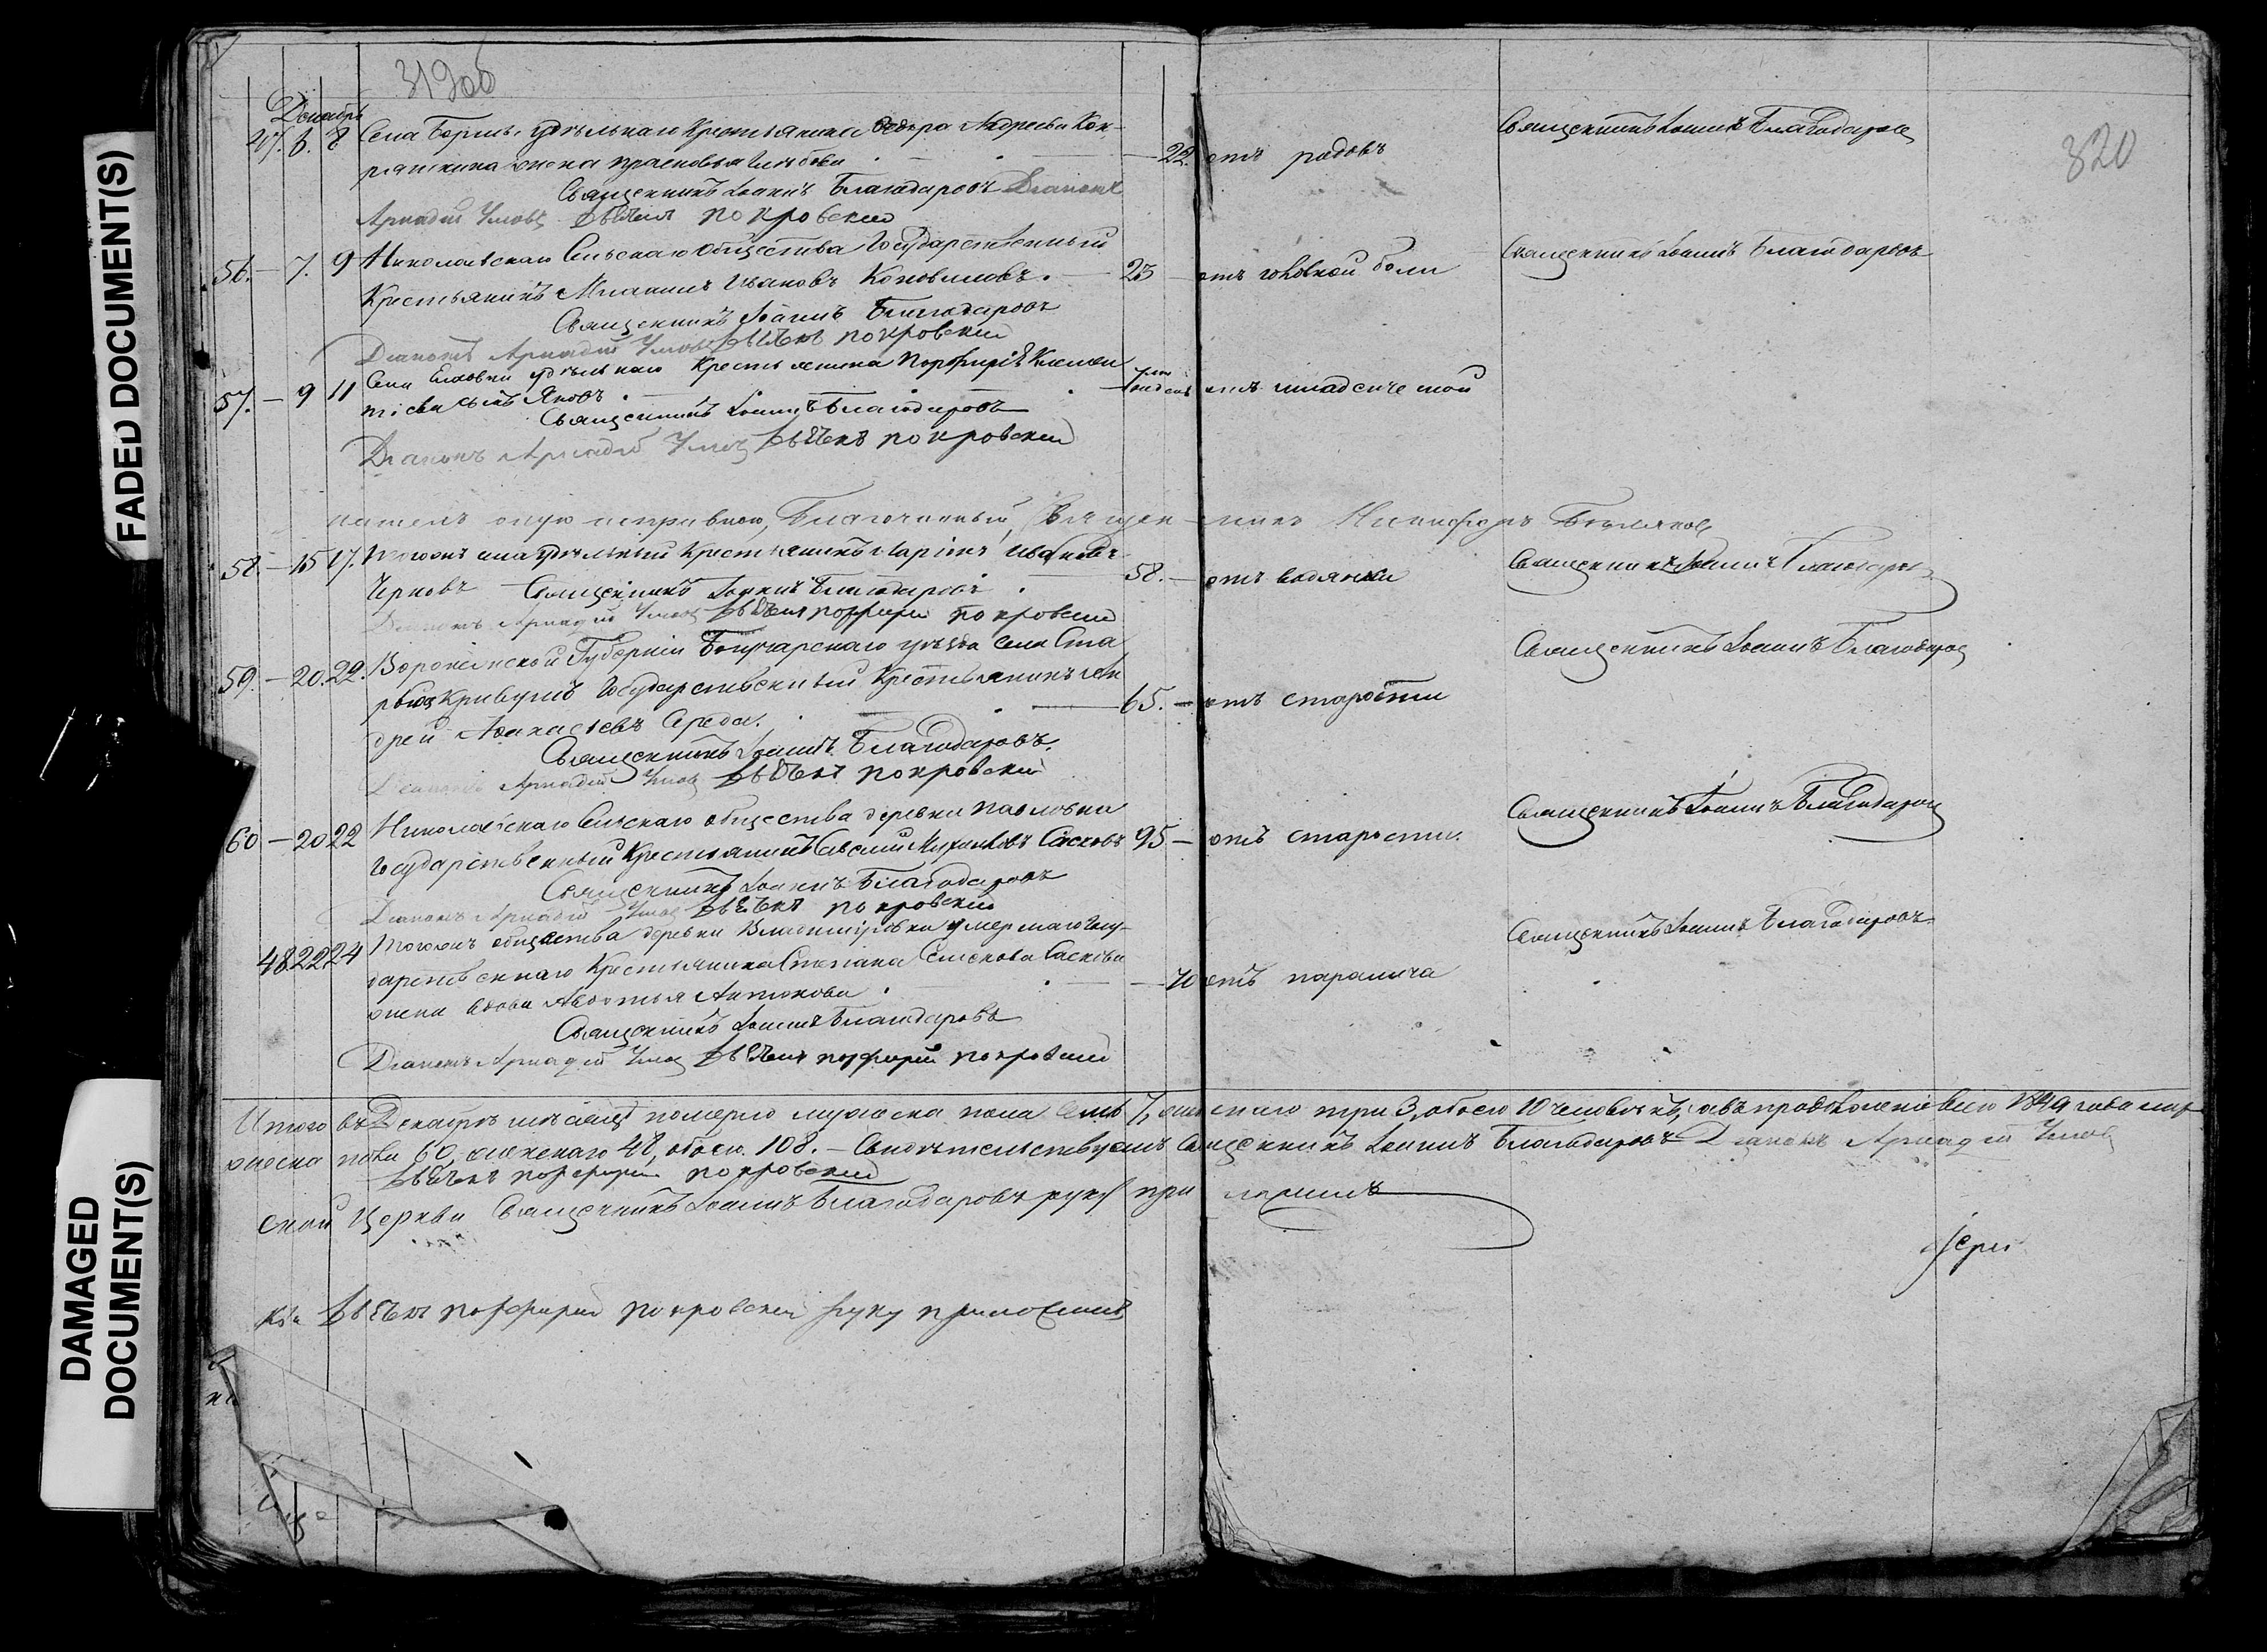 FADED DOCUMENT(S)
DAMAGED DOCUMENT(S)
319об
320
Декабрь
47. 6. 8 Села удѣльнаго Крестьянина Федора Андреева Кон-
жена Глѣбова 22. отъ родовъ Священникъ Іоаннъ Благодаровъ
Священникъ Іоаннъ Благодаровъ Діаконъ
Аркадій Умовъ покровский
56. — 7. 9 Николаевскаго Сельскаго Общества Государственный
Крестьянинъ Ивановъ Коноваловъ. 25 отъ головной боли Священникъ Іоаннъ Благодаровъ
Священникъ Іоаннъ Благодаровъ
Діаконъ Аркадій Умовъ покровский
57. — 9 11 Села Елховки удѣльнаго Крестьянина Порфирія Клемен
тіева сынъ Яковъ. отъ младенческой
Священникъ Іоаннъ Благодаровъ
Діаконъ Аркадій Умовъ покровский
оную исправною, Благочинный, Священникъ Никифоръ Бѣляковъ
58. — 15 17. Тогожъ села удѣльный Крестьянинъ Ларіонъ Ивановъ
Черновъ 58. — отъ водянки Священникъ Іоаннъ Благодаровъ
Священникъ Іоаннъ Благодаровъ
Діаконъ Аркадій Умовъ порфирий покровский
59. — 20. 22. Воронежской Губерніи Богучарскаго уѣзда Села Ста
рыхъ Криушъ Государственный Крестьянинъ Ан
дрей Афанасьевъ Середа. 65. — отъ старости Священникъ Іоаннъ Благодаровъ
Священникъ Іоаннъ Благодаровъ.
Діаконъ Аркадій Умовъ покровский
60 — 20 22 Николаевскаго Сельскаго общества деревни Павловки
Государственный Крестьянинъ Савелий Сасковъ 95 — отъ старости. Священникъ Іоаннъ Благодаровъ
Священникъ Іоаннъ Благодаровъ
Діаконъ Аркадій Умовъ покровский
48 22 24 Тогожъ общества деревни Владиміровки умершаго Госу-
дарственнаго Крестьянина Степана Саскова
жена вдова Авдотья Антонова. 70 отъ паралича Священникъ Іоаннъ Благодаровъ
Священникъ Іоаннъ Благодаровъ
Діаконъ Аркадій Умовъ порфирий покровский
Итого въ Декабрѣ мѣсяцѣ померло мужеска пола семь 7, женскаго три 3, обоего 10 человѣкъ, а въ продолженіе всего 1849 года му-
жеска пола 60, женскаго 48, обоего 108. — Свидѣтельствуемъ Священникъ Іоаннъ Благодаровъ Діаконъ Аркадій Умовъ
порфирий покровский
ской Церкви Священникъ Іоаннъ Благодаровъ руку приложилъ
порфирий покровский руку приложилъ